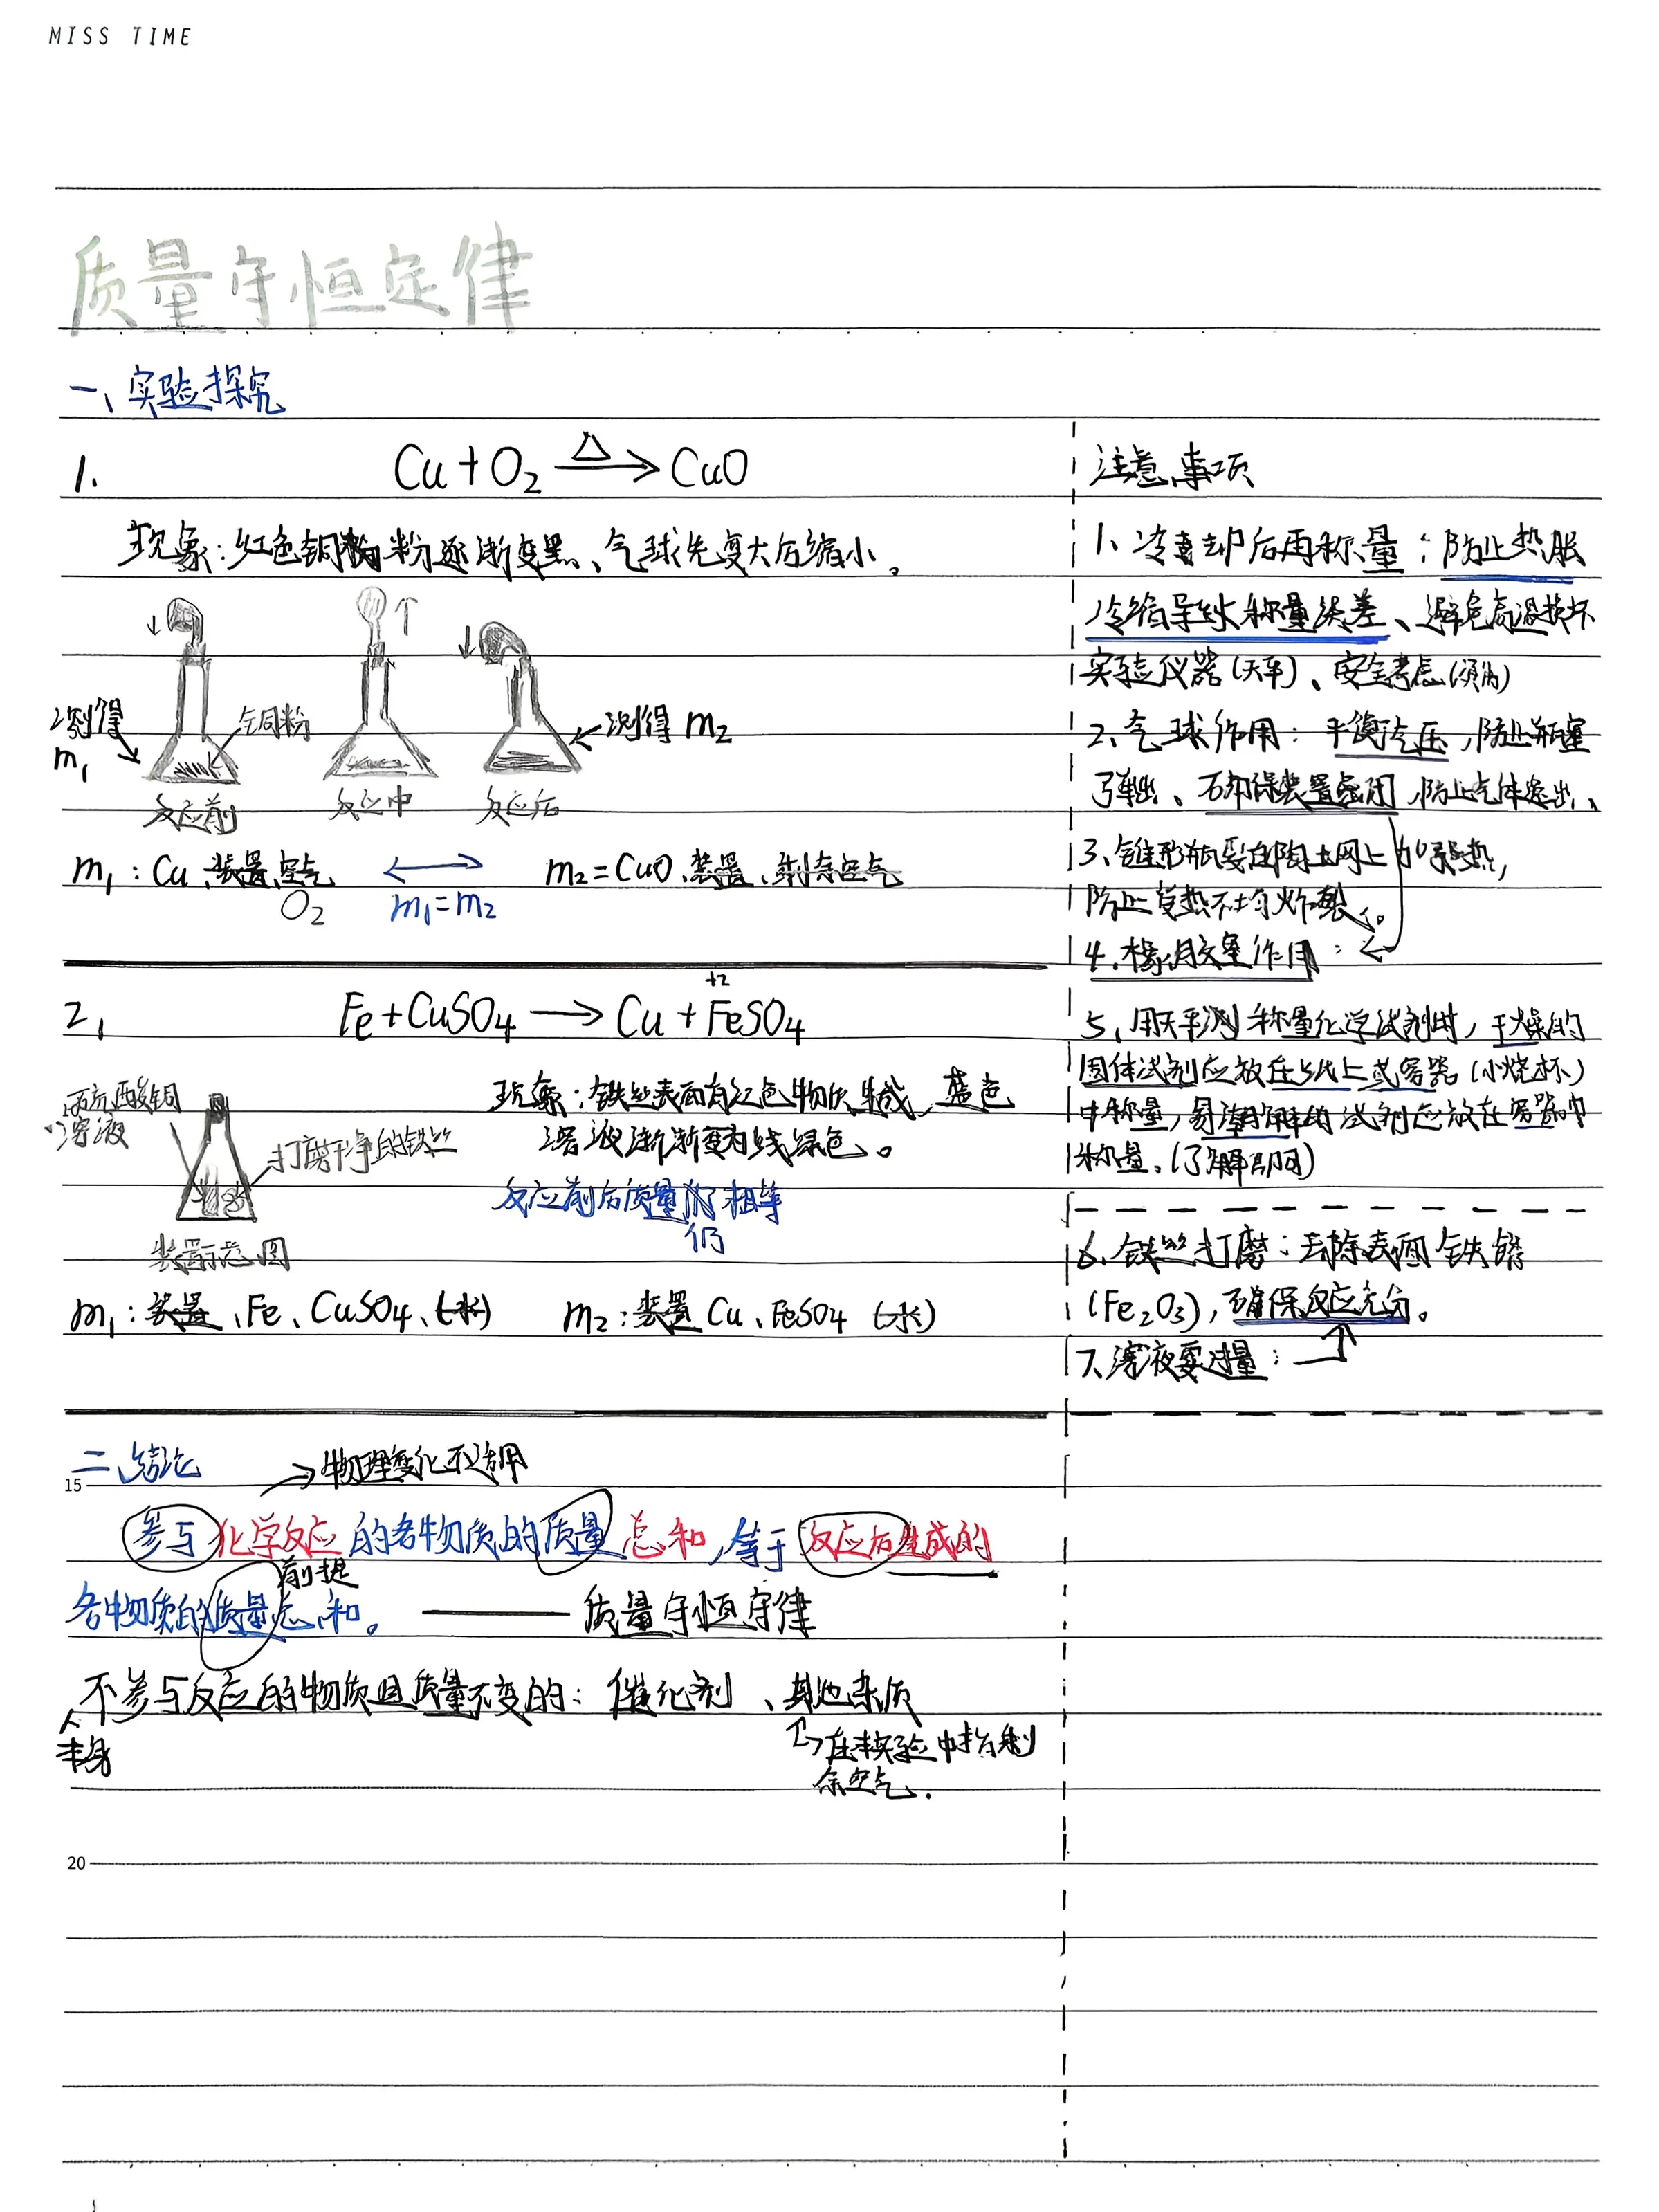 MISS TIME
质量守恒定律
一、实验探究
1. Cu + O₂ —△→ CuO
现象：红色铜粉逐渐变黑、气球先变大后缩小。
测得
m₁
铜粉
测得 m₂
反应前
反应中
反应后
m₁：Cu、装置、空气
O₂
m₁=m₂
m₂=CuO、装置、剩余空气
2、 Fe+CuSO₄ ⟶ Cu + FeSO₄
+2
硫酸铜
溶液
打磨干净的铁丝
装置示意图
现象：铁丝表面有红色物质生成、蓝色
溶液渐渐变为浅绿色。
反应前后质量仍相等
仍
m₁：装置、Fe、CuSO₄、(水)
m₂：装置 Cu、FeSO₄ (水)
二、结论
→物理变化不适用
参与化学反应的各物质的质量总和，等于反应后生成的
前提
各物质的质量总和。 —— 质量守恒守律
不参与反应的物质且质量不变的：催化剂、其他杂质
本身
↳在本实验中指剩
余空气.
注意事项
1、冷却后再称量：防止热胀
冷缩导致称量误差、避免高温损坏
实验仪器(天平)、安全考虑
2、气球作用：平衡气压，防止瓶塞
弹出、确保装置密闭，防止气体逸出、
3、锥形瓶要在陶土网上加热，
防止受热不均炸裂。
4、橡胶塞作用：
5、用天平称量化学试剂时，干燥的
固体试剂应放在纸上或容器(小烧杯)
中称量，易潮解的试剂应放在容器中
称量、(了解即可)
6、铁丝打磨：去除表面铁锈
(Fe₂O₃)，确保反应充分。
7、溶液要过量：
15
20